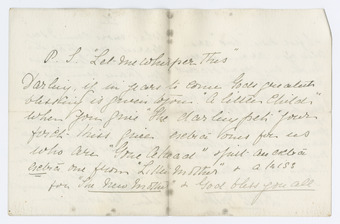 P. S. "Let me whisper This"
Darling, if in years to come God's greatest
blessing is given you "A little Child"
when you give the darling pet "your
first" kiss give extra ones for us
who are "Gone Ahead" & just an extra
extra one from "Little Mother" & a kiss
for "The New Mother" & God bless you all